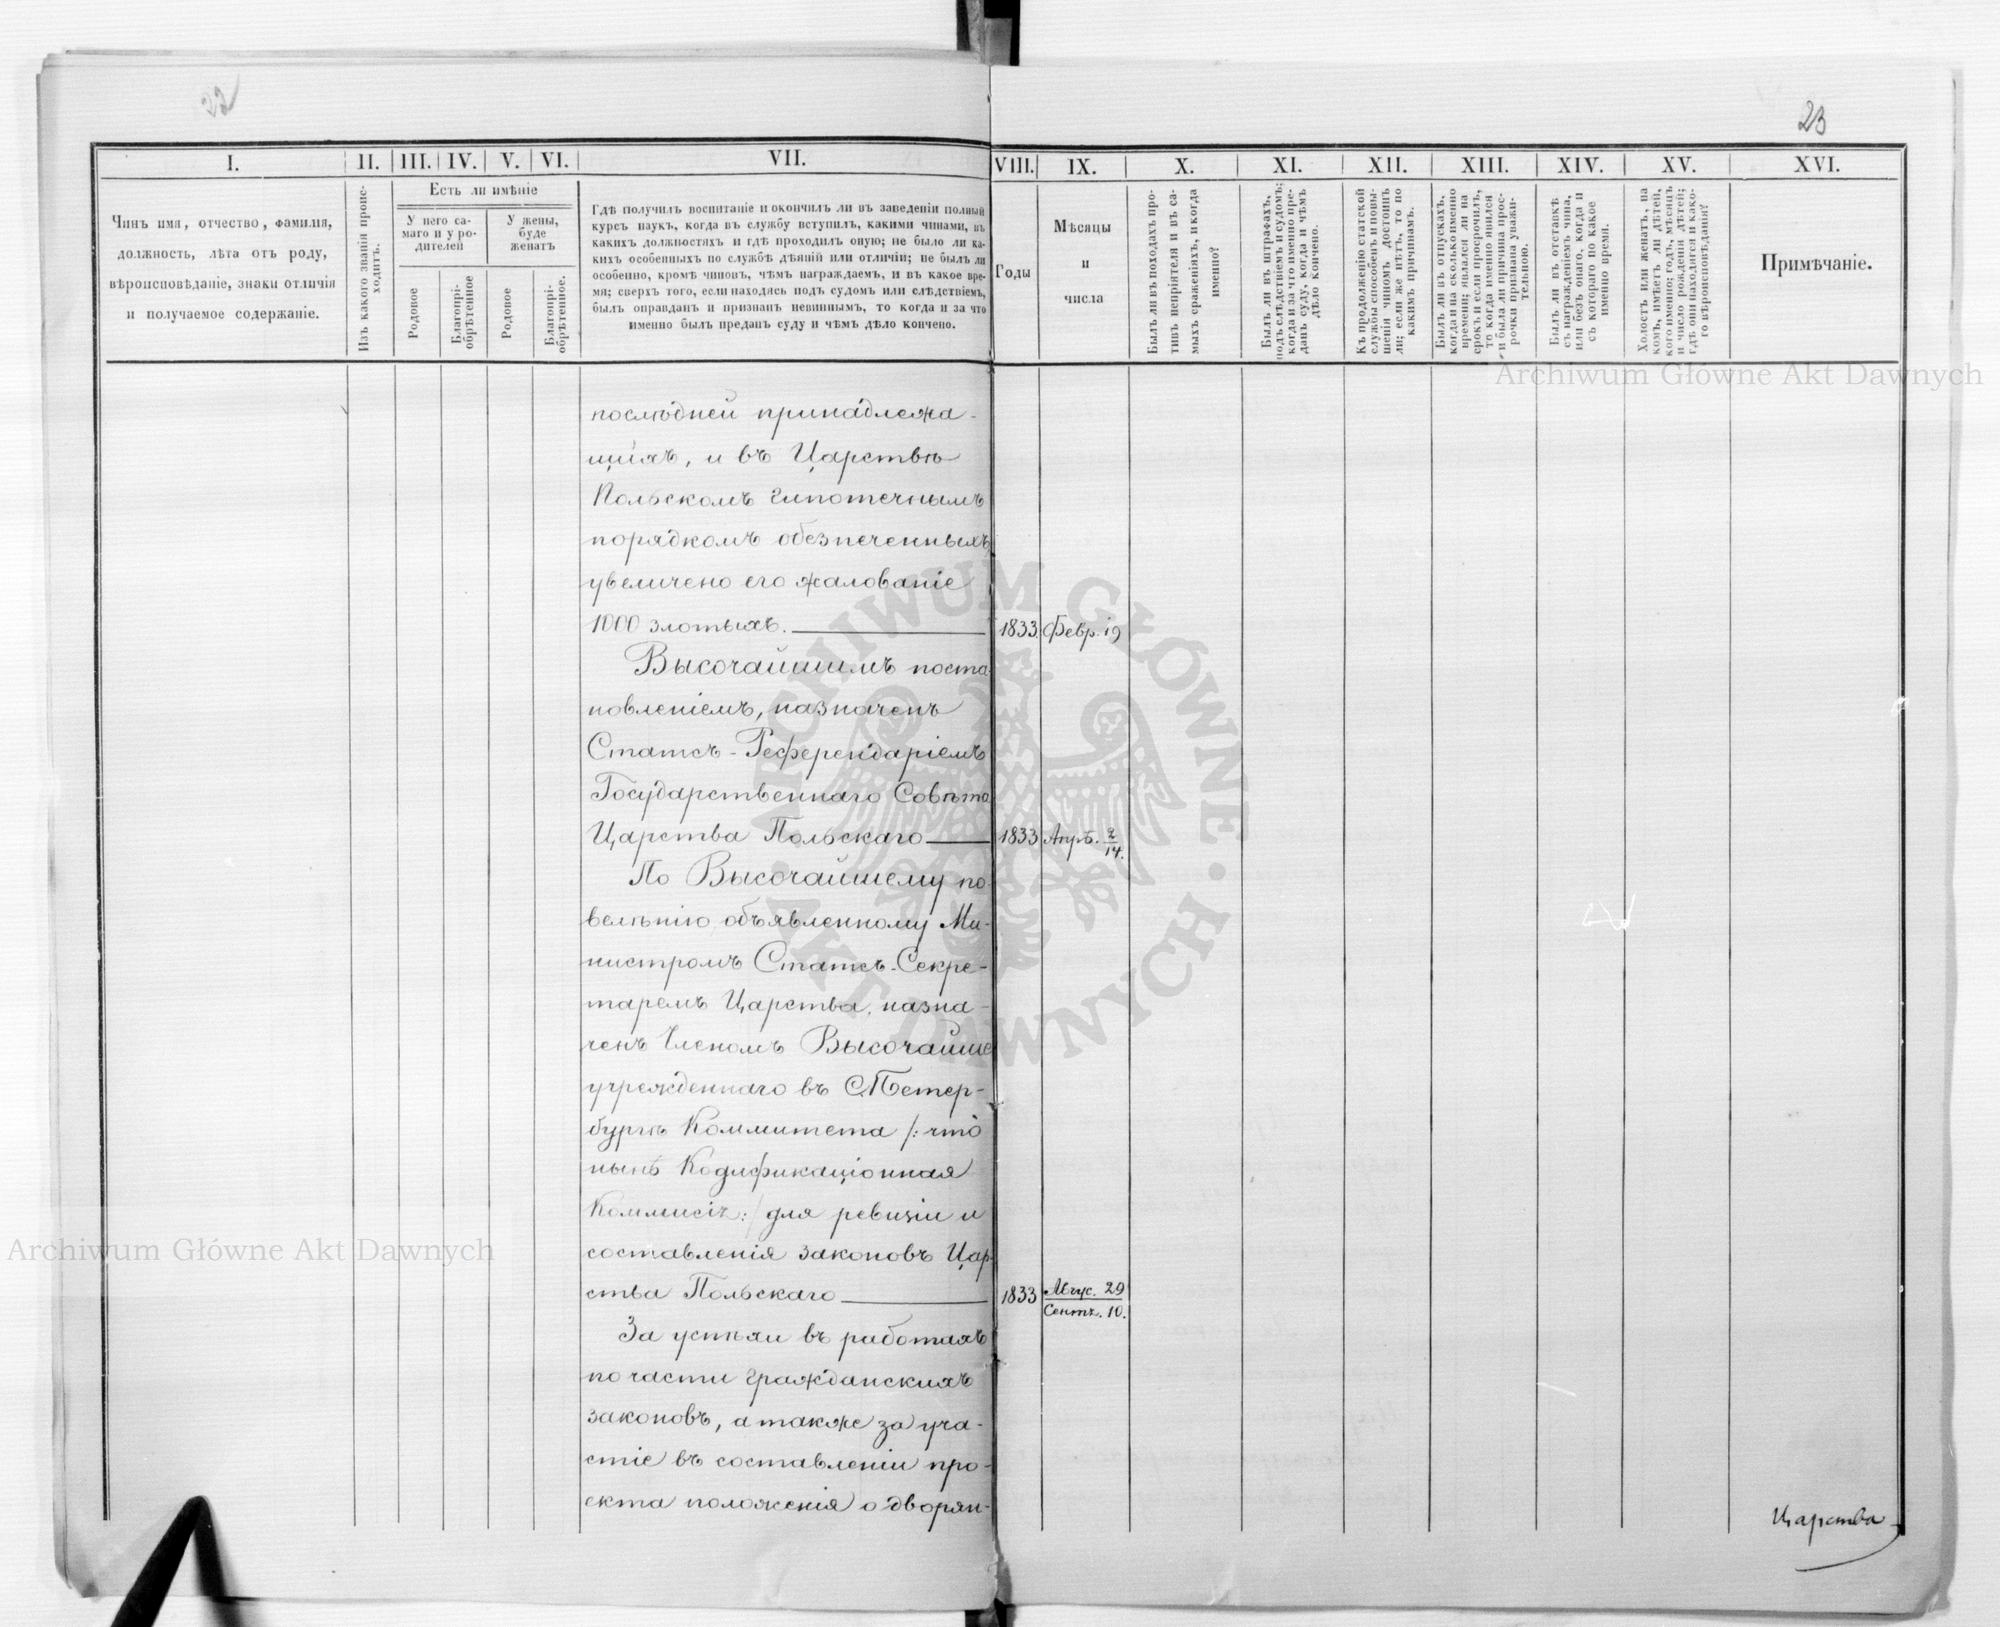 22
23
I.
II.
III.
IV.
V.
VI.
VII.
VIII.
IX.
X.
XI.
XII.
XIII.
XIV.
XV.
XVI.
Чинъ имя, отчество, фамилія,
должность, лѣта отъ роду,
вѣроисповѣданіе, знаки отличія
и получаемое содержаніе.
Изъ какого званія проис-
ходитъ.
Есть ли имѣніе
У него са-
маго и у ро-
дителей
У жены,
буде
женатъ
Родовое
Благопрі-
обрѣтенное
Родовое
Благопрі-
обрѣтенное.
Гдѣ получилъ воспитаніе и окончилъ ли въ заведеніи полный
курсъ наукъ, когда въ службу вступилъ, какими чинами, въ
какихъ должностяхъ и гдѣ проходилъ оную; не было ли ка-
кихъ особенныхъ по службѣ дѣяній или отличій; не былъ ли
особенно, кромѣ чиновъ, чѣмъ награждаемъ, и въ какое вре-
мя; сверхъ того, если находясь подъ судомъ или слѣдствіемъ,
былъ оправданъ и признанъ невиннымъ, то когда и за что
именно былъ преданъ суду и чѣмъ дѣло кончено.
Годы
Мѣсяцы
и
числа
Былъ ли въ походахъ про-
тивъ непріятеля и въ са-
мыхъ сраженіяхъ, и когда
именно?
Былъ ли въ штрафахъ,
подъ слѣдствіемъ и судомъ;
когда и за что именно пре-
данъ суду, когда и чѣмъ
дѣло кончено.
Къ продолженію статской
службы способенъ и повы-
шенія чиномъ достоинъ
ли; если же нѣтъ, то по
какимъ причинамъ.
Былъ ли въ отпускахъ,
когда и на сколько именно
времени; являлся ли на
срокъ и если просрочилъ,
то когда именно явился
и была ли причина прос-
рочки признана уважи-
тельною.
Былъ ли въ отставкѣ
съ награжденіемъ чина,
или безъ онаго, когда и
съ котораго по какое
именно время.
Холостъ или женатъ, на
комъ, имѣетъ ли дѣтей,
кого именно; годъ, мѣсяцъ
и число рожденія дѣтей;
гдѣ они находятся и како-
го вѣроисповѣданія?
Примѣчаніе.
послѣдней принадлежа-
щихъ, и въ Царствѣ
Польскомъ гипотечнымъ
порядкомъ обезпеченныхъ
увеличено его жалованіе
1000 злотыхъ. 1833. Февр. 19
Высочайшимъ поста-
новленіемъ, назначенъ
Статсъ-Референдаріемъ
Государственнаго Совѣта
Царства Польскаго 1833 Апрѣ. 2/14.
По Высочайшему по-
велѣнію объявленному Ми-
нистромъ Статсъ-Секре-
таремъ Царства, назна-
ченъ Членомъ Высочайше
учрежденнаго въ С.Петер-
бургѣ Коммитета /: что
нынѣ Кодификаціонная
Коммисія: / для ревизіи и
составленія законовъ Цар-
ства Польскаго 1833 Авгус. 29/Сентъ. 10.
За успѣхи въ работахъ
по части гражданскихъ
законовъ, а также за уча-
стіе въ составленіи про-
екта положенія о дворян-
Царства
Archiwum Główne Akt Dawnych
Archiwum Główne Akt Dawnych
ARCHIWUM GŁÓWNE · AKT DAWNYCH ·